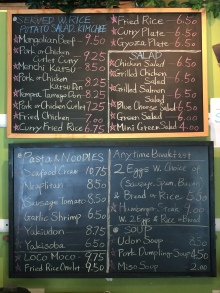 SERVED W. RICE
POTATO SALAD, KIMCHEE
Mongolian Beef 7.50
Pork or Chicken
Cutlet Curry 7.25
Mochi Katsu 8.50
Pork or Chicken
Katsu Don 8.25
Tempura
Pork or Chicken
Cutlet 7.25
Fried Chicken 7.00
Curry Fried Rice 6.75
Fried Rice 6.50
Curry Plate 6.50
Gyoza Plate 6.50
SALAD
Chicken Salad 6.50
Grilled Chicken
Salad 6.50
Grilled Salmon
Salad 6.50
Blue Cheese Salad 6.50
Green Salad 6.00
Mini Green Salad 4.00
Pasta & NOODLES
Seafood Cream 10.75
Neapolitan 8.50
Sausage Tomato 8.50
Garlic Shrimp 6.50
Yakiudon 8.75
Yakisoba 6.50
LOCO MOCO 9.75
Fried Rice Omlet 9.50
Anytime Breakfast
2 Eggs W. Choice of
(Sausage, Spam, Bacon)
Bread or Rice 5.50
Hamburger Steak 9.00
W. 2 Eggs & Rice or Bread
SOUP
Udon Soup 8.50
Pork Dumpling Soup 4.50
Miso Soup 2.00